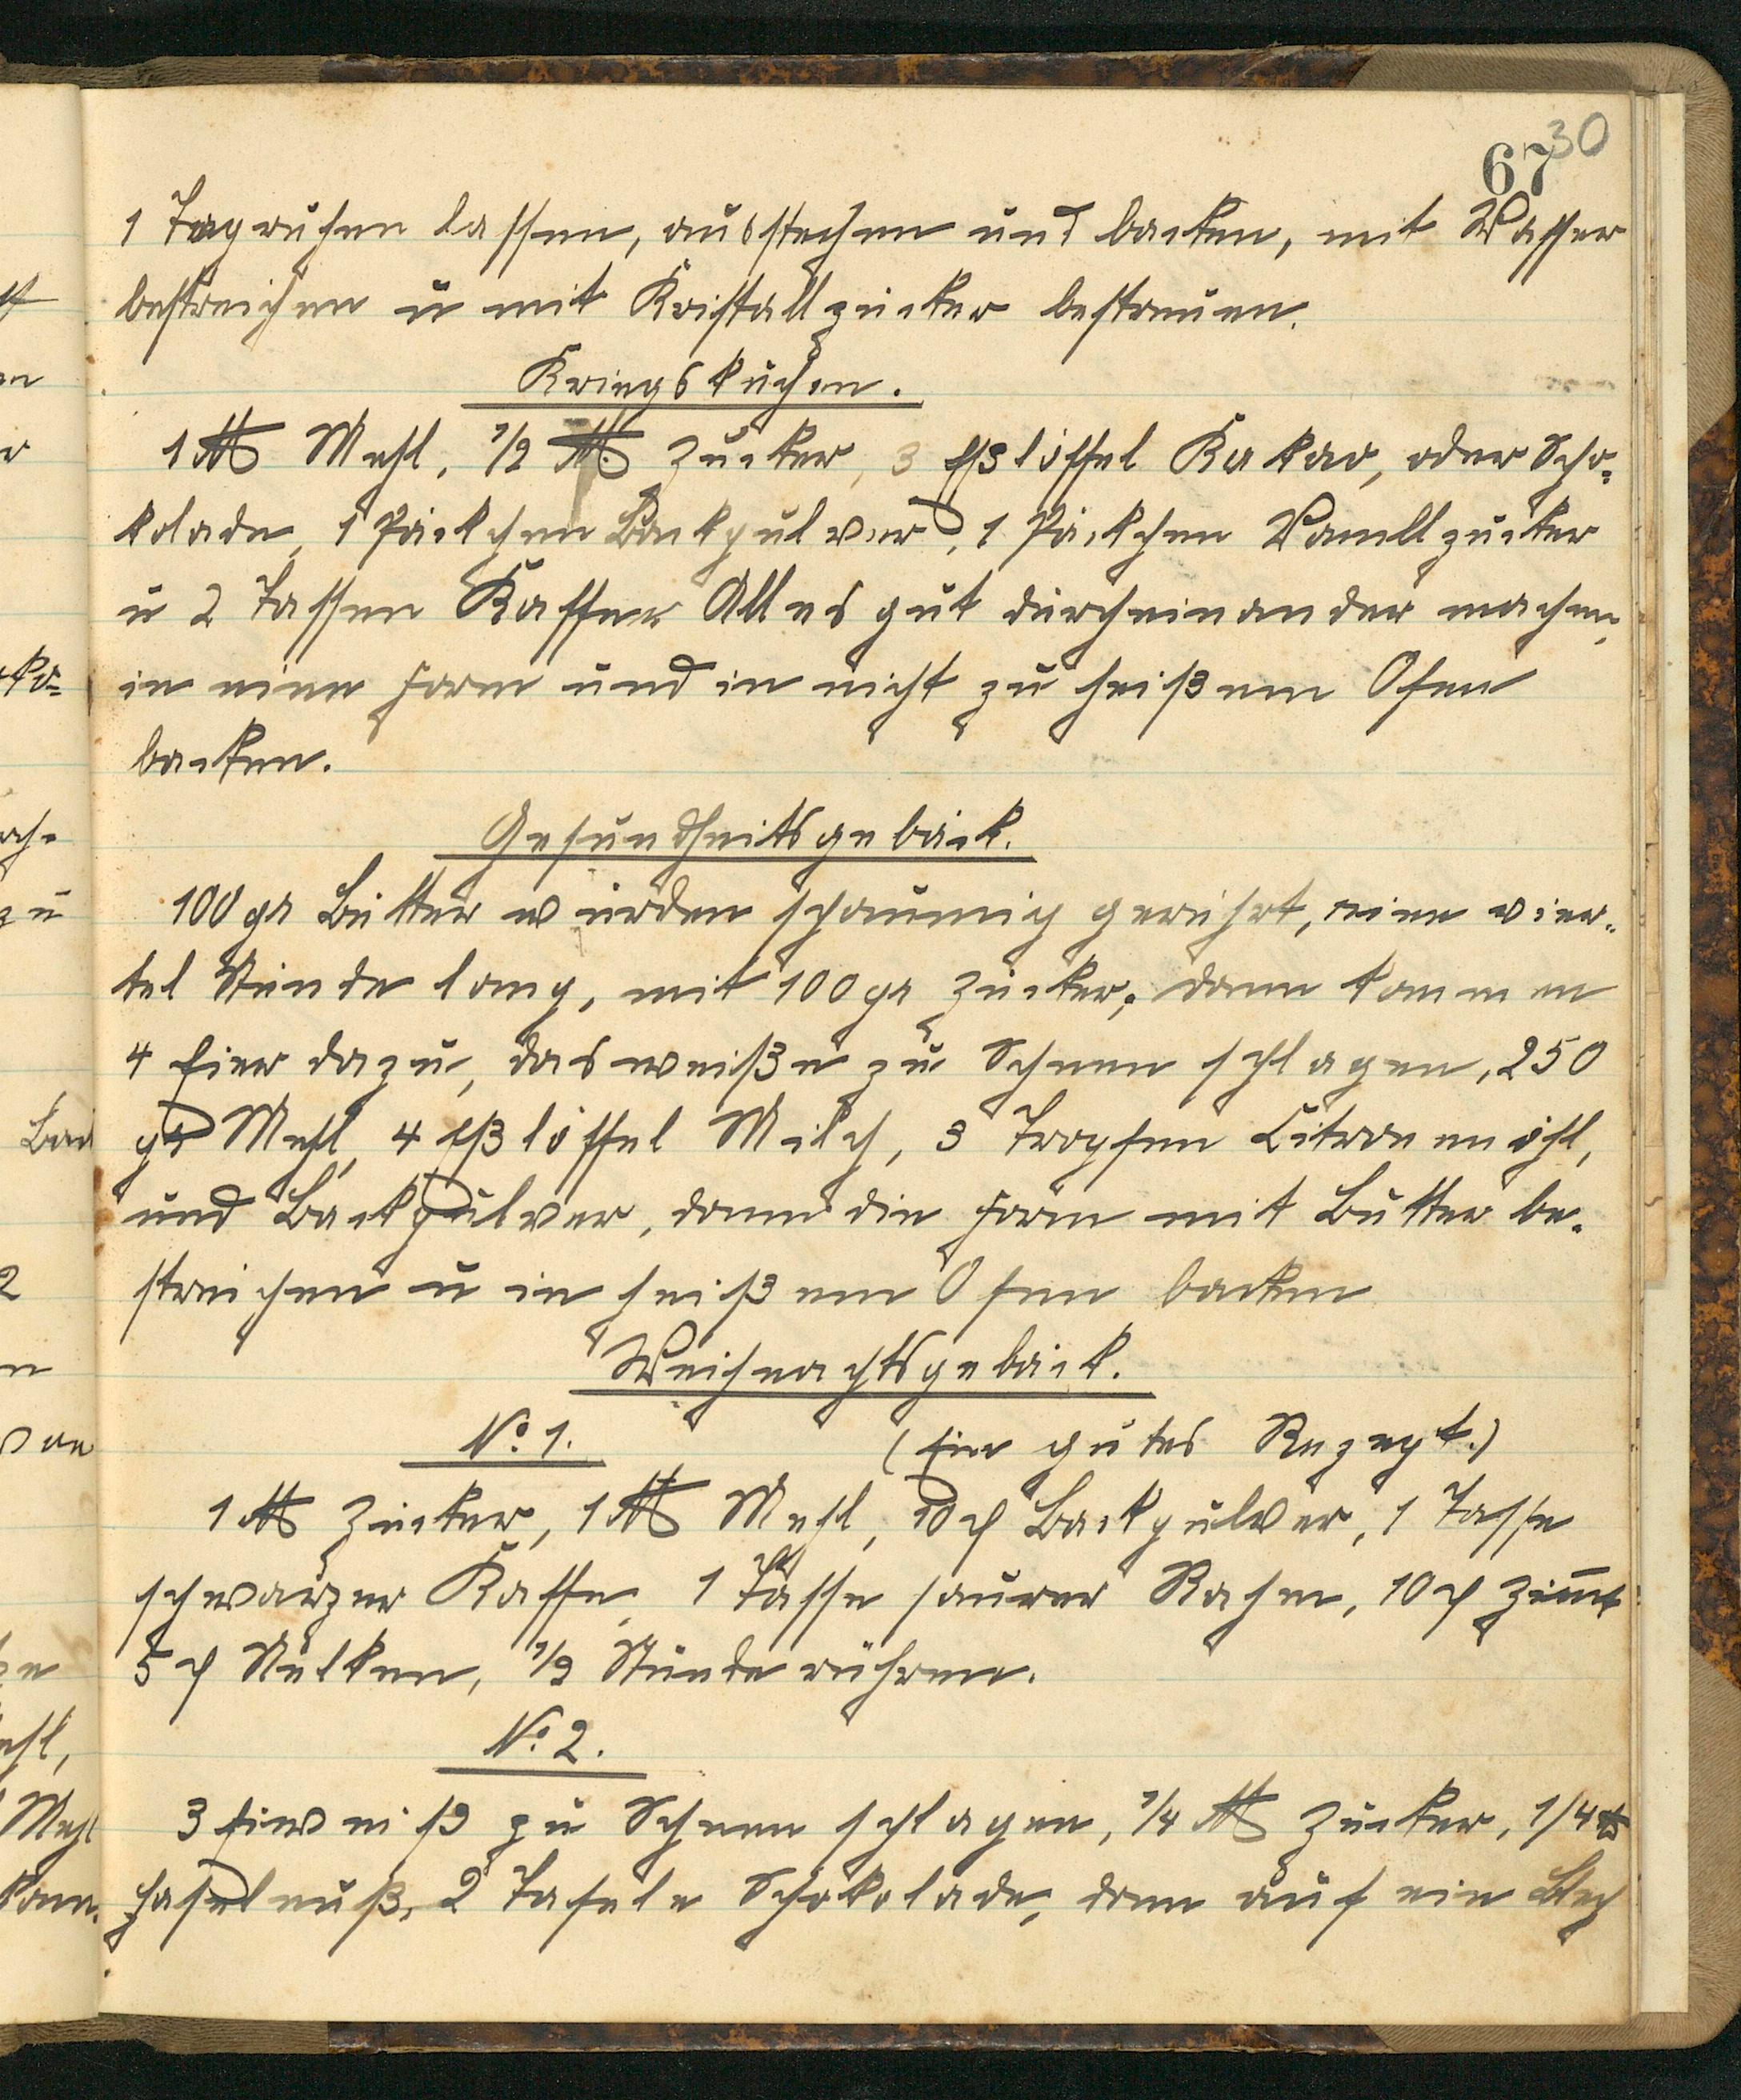 30
67
1 Tag ruhen lassen, ausstechen und backen, mit Wasser
bestreichen u mit Kristallzucker bestreuen.
Kriegskuchen.
1 ℔ Mehl, 1/2 ℔ Zucker, 3 Eßlöffel Kakao, oder Scho-
kolade, 1 Päckchen Backpulver, 1 Päckchen Vanillzucker
u 2 Tassen Kaffee Alles gut durcheinander machen,
in eine Form und in nicht zu heißem Ofen
backen.
Gesundheitsgebäck.
100 gr Butter würden schaumig gerührt, eine vier-
tel Stunde lang, mit 100 gr Zucker, dann kommen
4 Eier dazu, das weiße zu Schnee schlagen, 250
gr Mehl, 4 Eßlöffel Milch, 3 Tropfen Citronenöhl,
und Backpulver, dann die Form mit Butter be-
streichen u in heißem Ofen backen
Weihnachtsgebäck.
No. 1. (Ein gutes Rezept.)
1 ℔ Zucker, 1 ℔ Mehl, 10 ₰ Backpulver, 1 Tasse
schwarzer Kaffe, 1 Tasse saurer Rahm, 10 ₰ Zimt
5 ₰ Nelken, 1/2 Stunde rühren.
No. 2.
3 Eiweiß zu Schnee schlagen, 1/4 ℔ Zucker, 1/4 ℔
Haselnuß, 2 Tafeln Schokolade, dann auf ein Blech